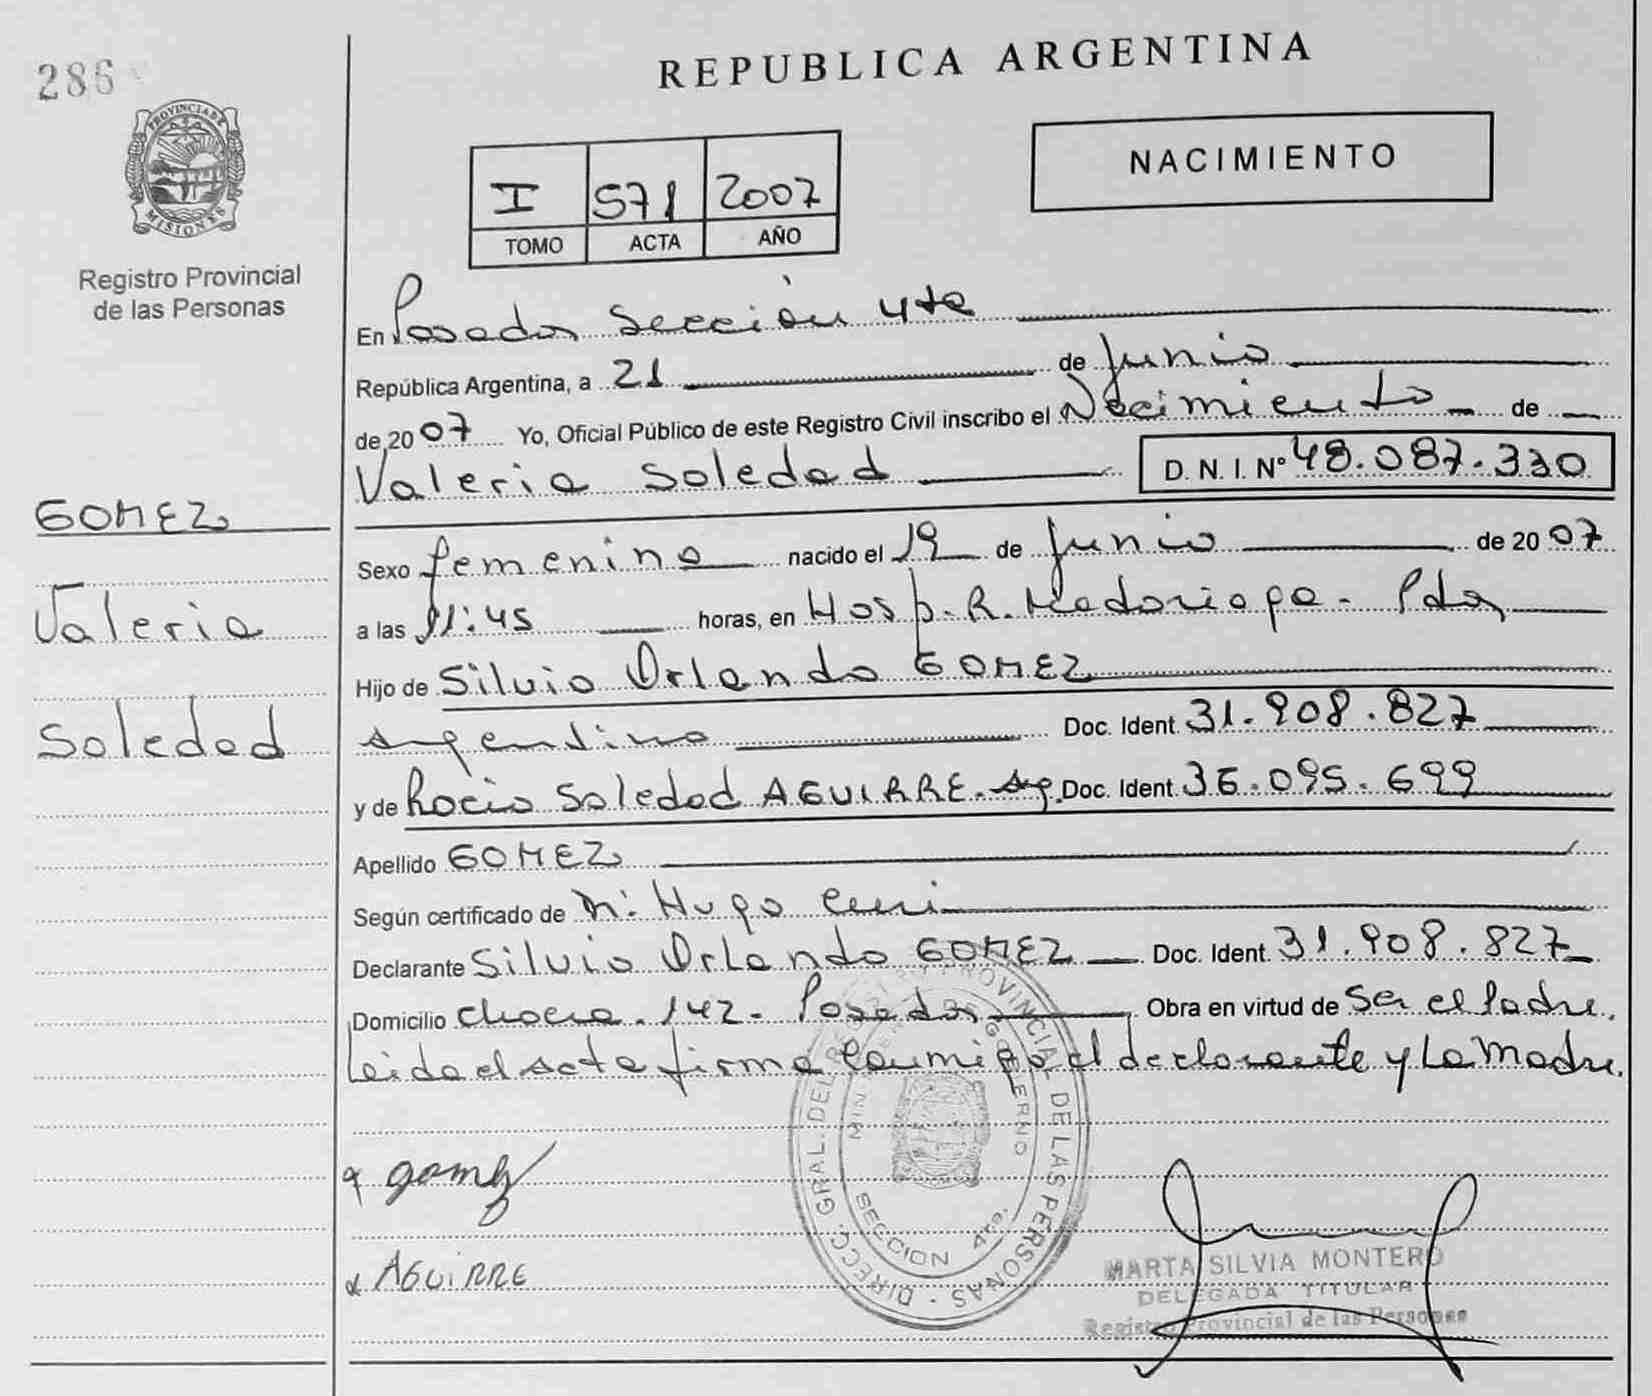 286
REPUBLICA ARGENTINA
PROVINCIA DE MISIONES
Registro Provincial
de las Personas
I 571 2007
TOMO ACTA AÑO
NACIMIENTO
En Posadas Sección 4ta
República Argentina, a 21 de Junio
de 2007 Yo, Oficial Público de este Registro Civil inscribo el Nacimiento de
Valeria Soledad D. N. I. Nº 48.087.330
GOMEZ
Valeria
Soledad
Sexo femenino nacido el 19 de Junio de 2007
a las 11:45 horas, en Hosp. R. Madariaga - Pdas
Hijo de Silvio Orlando GOMEZ
argentino Doc. Ident. 31.908.827
y de Rocio Soledad AGUIRRE. arg. Doc. Ident. 36.095.699
Apellido GOMEZ
Según certificado de Hugo
Declarante Silvio Orlando GOMEZ Doc. Ident. 31.908.827
Domicilio chacra. 142 - Posadas Obra en virtud de Ser el Padre.
Leida el acta firma conmigo el declarante y La Madre.
gomez
AGUIRRE
DIRECC. GRAL. DEL REGISTRO PROVINCIAL DE LAS PERSONAS
SECCION 4ta.
MARTA SILVIA MONTERO
DELEGADA TITULAR
Registro Provincial de las Personas